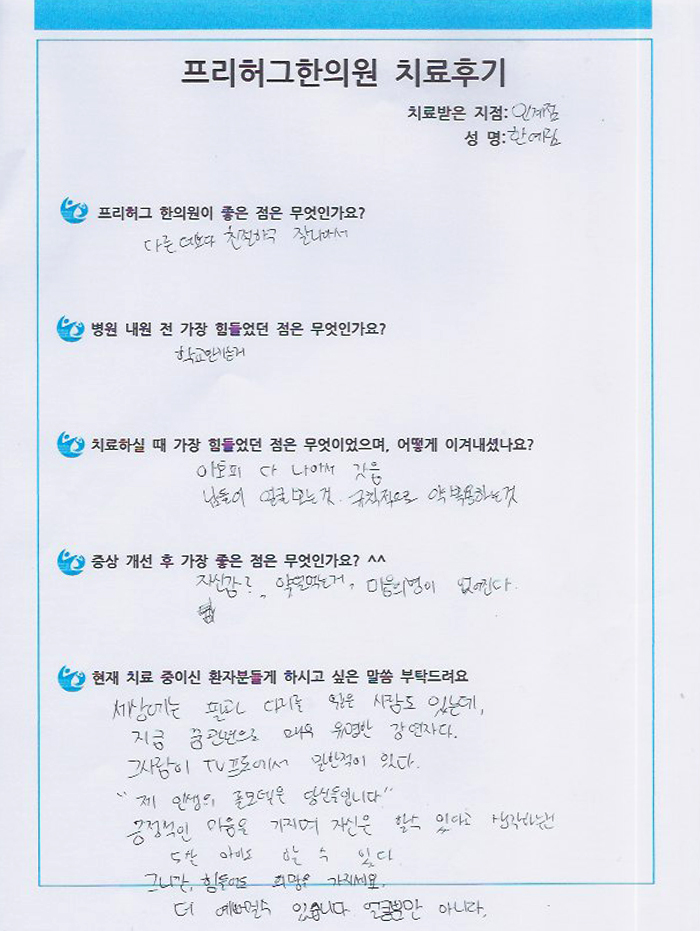 프리허그한의원 치료후기
치료받은 지점: 인계점
성 명: 한예림
프리허그 한의원이 좋은 점은 무엇인가요?
다른데보다 친절하구 잘나아서
병원 내원 전 가장 힘들었던 점은 무엇인가요?
학교안가는거
치료하실 때 가장 힘들었던 점은 무엇이었으며, 어떻게 이겨내셨나요?
아토피 다 나아서 갔음
남들이 얼굴보는것. 규칙적으로 약복용하는것
증상 개선 후 가장 좋은 점은 무엇인가요? ^^
자신감?, 약덜먹는거, 마음의병이 없어진다.
현재 치료 중이신 환자분들게 하시고 싶은 말씀 부탁드려요
세상에는 팔과 다리를 잃은 사람도 있는데,
지금 꿈관련으로 매우 유명한 강연자다.
그사람이 TV프로에서 말한적이 있다.
"제 인생의 롤모델은 당신들입니다"
긍정적인 마음을 가지며 자신은 할수 있다고 생각하는건
5살 아이도 할 수 있다
그니깐, 힘들어도 희망을 가지세요.
더 예뻐질수 있습니다 얼굴뿐만 아니라,